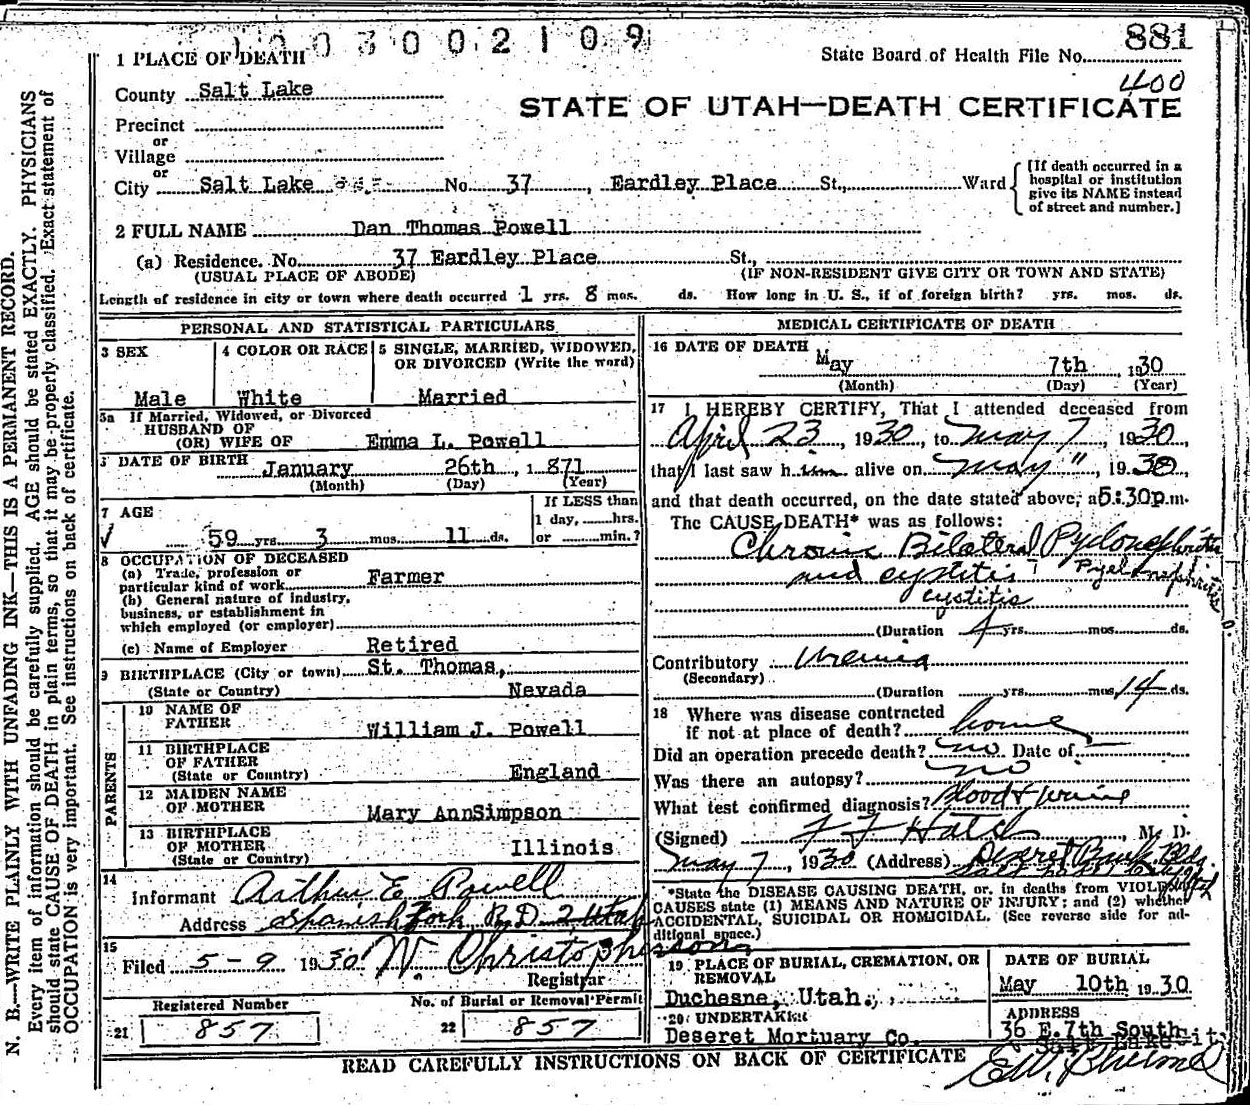 1003002109
881
State Board of Health File No.
400
1 PLACE OF DEATH
County Salt Lake
STATE OF UTAH—DEATH CERTIFICATE
Precinct
or
Village
or
City Salt Lake No. 37, Eardley Place St., Ward
[If death occurred in a hospital or institution give its NAME instead of street and number.]
2 FULL NAME Dan Thomas Powell
(a) Residence. No. 37 Eardley Place St.,
(USUAL PLACE OF ABODE) (IF NON-RESIDENT GIVE CITY OR TOWN AND STATE)
Length of residence in city or town where death occurred 1 yrs. 8 mos. ds. How long in U. S., if of foreign birth? yrs. mos. ds.
PERSONAL AND STATISTICAL PARTICULARS
3 SEX
4 COLOR OR RACE
5 SINGLE, MARRIED, WIDOWED,
OR DIVORCED (Write the word)
Male White Married
5a If Married, Widowed, or Divorced
HUSBAND OF
(OR) WIFE OF Emma L. Powell
DATE OF BIRTH January 26th, 1871
(Month) (Day) (Year)
7 AGE
If LESS than
1 day, hrs.
or min.?
√ 59 yrs. 3 mos. 11 ds.
8 OCCUPATION OF DECEASED
(a) Trade, profession or
particular kind of work Farmer
(b) General nature of industry,
business, or establishment in
which employed (or employer)
(c) Name of Employer Retired
9 BIRTHPLACE (City or town) St. Thomas,
(State or Country) Nevada
PARENTS
10 NAME OF
FATHER William J. Powell
11 BIRTHPLACE
OF FATHER
(State or Country) England
12 MAIDEN NAME
OF MOTHER Mary AnnSimpson
13 BIRTHPLACE
OF MOTHER
(State or Country) Illinois
14
Informant Arthur E Powell
Address Spanish Fork R.D. 2, Utah
15
Filed 5-9 1930 W. Christophersong
Registrar
Registered Number
No. of Burial or Removal Permit
21 857
22 857
MEDICAL CERTIFICATE OF DEATH
16 DATE OF DEATH
May 7th, 1930
(Month) (Day) (Year)
17 I HEREBY CERTIFY, That I attended deceased from
April 23, 1930, to May 7, 1930
that I last saw him alive on May ", 1930,
and that death occurred, on the date stated above, a5:30p.m.
The CAUSE DEATH* was as follows:
Chronic Bilateral Pyelonephritis
and cystitis Pyelonephritis
cystitis
(Duration 4 yrs. mos. ds.
Contributory Uremia
(Secondary)
(Duration yrs. mos. 14 ds.
18 Where was disease contracted
if not at place of death? home
Did an operation precede death? no Date of —
Was there an autopsy? no
What test confirmed diagnosis? Blood & urine
(Signed) F F Hatch, M. D.
May 7, 1930 (Address) Deseret Bank Bldg.
*State the DISEASE CAUSING DEATH, or, in deaths from VIOLENT
CAUSES state (1) MEANS AND NATURE OF INJURY; and (2) whether
ACCIDENTAL, SUICIDAL OR HOMICIDAL. (See reverse side for ad-
ditional space.)
19 PLACE OF BURIAL, CREMATION, OR
REMOVAL
Duchesne, Utah.
DATE OF BURIAL
May 10th 1930
20 UNDERTAKER
Deseret Mortuary Co.
ADDRESS
36 E. 7th South
Salt Lake Cit
READ CAREFULLY INSTRUCTIONS ON BACK OF CERTIFICATE
N. B.—WRITE PLAINLY WITH UNFADING INK—THIS IS A PERMANENT RECORD.
Every item of information should be carefully supplied. AGE should be stated EXACTLY. PHYSICIANS
should state CAUSE OF DEATH in plain terms, so that it may be properly classified. Exact statement of
OCCUPATION is very important. See instructions on back of certificate.